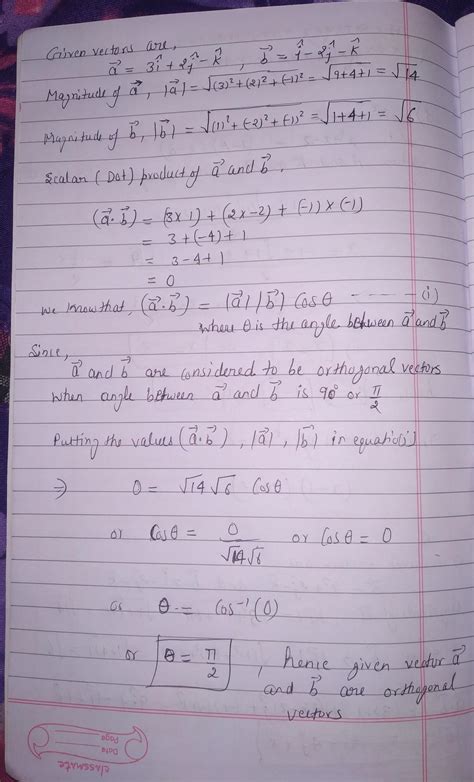 Given vectors are,
a⃗ = 3î + 2ĵ - k̂ , b⃗ = î - 2ĵ - k̂
Magnitude of a⃗, |a⃗| = √(3)²+(2)²+(-1)² = √9+4+1 = √14
Magnitude of b⃗, |b⃗| = √(1)²+(-2)²+(-1)² = √1+4+1 = √6
Scalar (Dot) product of a⃗ and b⃗.
(a⃗·b⃗) = (3×1) + (2×-2) + (-1)×(-1)
= 3+(-4)+1
= 3-4+1
= 0
We know that, (a⃗·b⃗) = |a⃗| |b⃗| Cosθ ------- (i)
where θ is the angle between a⃗ and b⃗
Since,
a⃗ and b⃗ are considered to be orthogonal vectors
when angle between a⃗ and b⃗ is 90° or π/2
Putting the values (a⃗·b⃗), |a⃗|, |b⃗| in equation(i)
⇒ 0 = √14 √6 Cosθ
or Cosθ = 0/√14√6 or Cosθ = 0
or θ = Cos⁻¹(0)
or θ = π/2 , hence given vector a⃗
and b⃗ are orthogonal
vectors
classmate
Date
Page